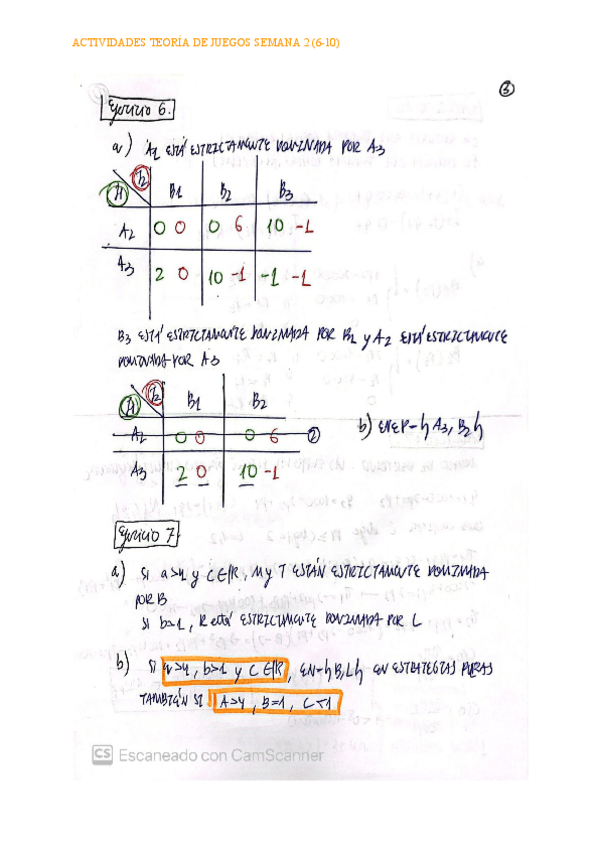 ACTIVIDADES TEORÍA DE JUEGOS SEMANA 2 (6-10)
3
Ejercicio 6.
a) A1 ESTÁ ESTRICTAMENTE DOMINADA POR A3
J1 J2 B1 B2 B3
A2 0 0 0 6 10 -1
A3 2 0 10 -1 -1 -1
B3 ESTÁ ESTRICTAMENTE DOMINADA POR B2 y A2 ESTÁ ESTRICTAMENTE
DOMINADA POR A3
J1 J2 B1 B2
A2 0 0 0 6 2
A3 2 0 10 -1
b) ENEP={A3, B1}
Ejercicio 7
a) SI a>4 y C∈ℝ, M y T ESTÁN ESTRICTAMENTE DOMINADA
POR B
SI b>1, R está ESTRICTAMENTE DOMINADA POR L
b) SI a>4, b>1 y C∈ℝ, EN={B,L} EN ESTRATEGIAS PURAS
TAMBIÉN SI A>4, B=1, C<1
CS Escaneado con CamScanner